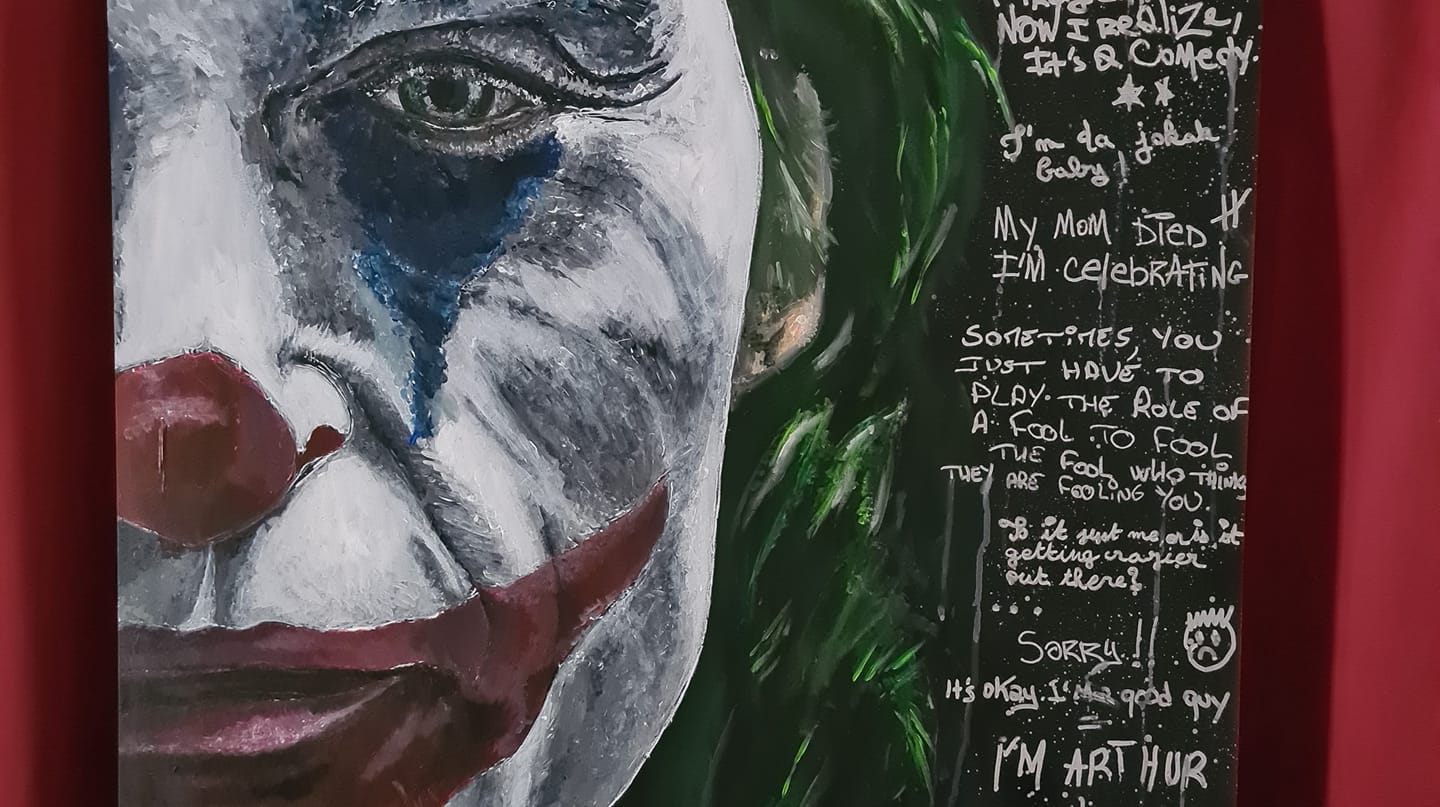 NOW I REALIZE,
It's a Comedy.
I'm da jokah
baby!
MY MOM DIED
I'M CELEBRATING
SOMETIMES, YOU
JUST HAVE TO
PLAY THE ROLE OF
A FOOL TO FOOL
THE FOOL WHO THINKS
THEY ARE FOOLING YOU.
Is it just me or is it
getting crazier
out there?
...
SORRY!!
It's okay. I'm a good guy
I'M ARTHUR